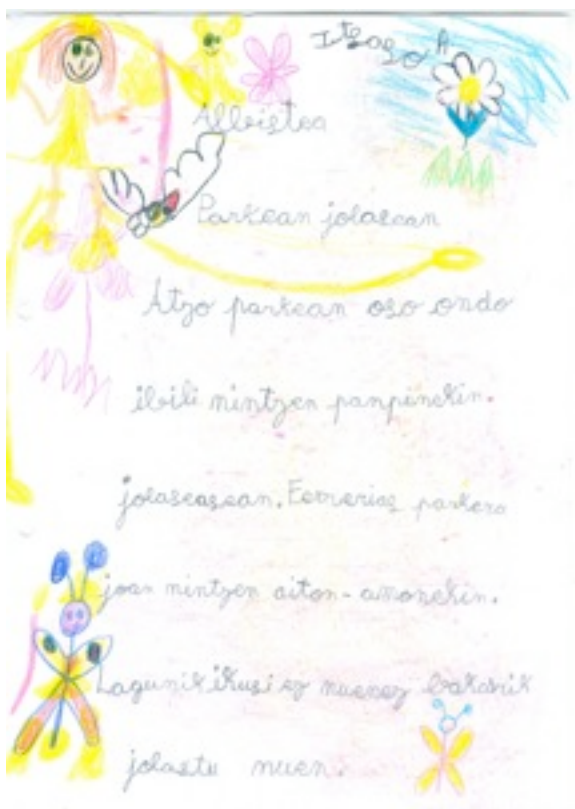 Itsaso A
Albistea
Parkean jolasean
Atzo parkean oso ondo
ibili nintzen panpinekin.
jolaseasean. parkera
joan nintzen aiton-amonekin.
Lagunik ikusi ez nuenez bakarrik
jolastu nuen.